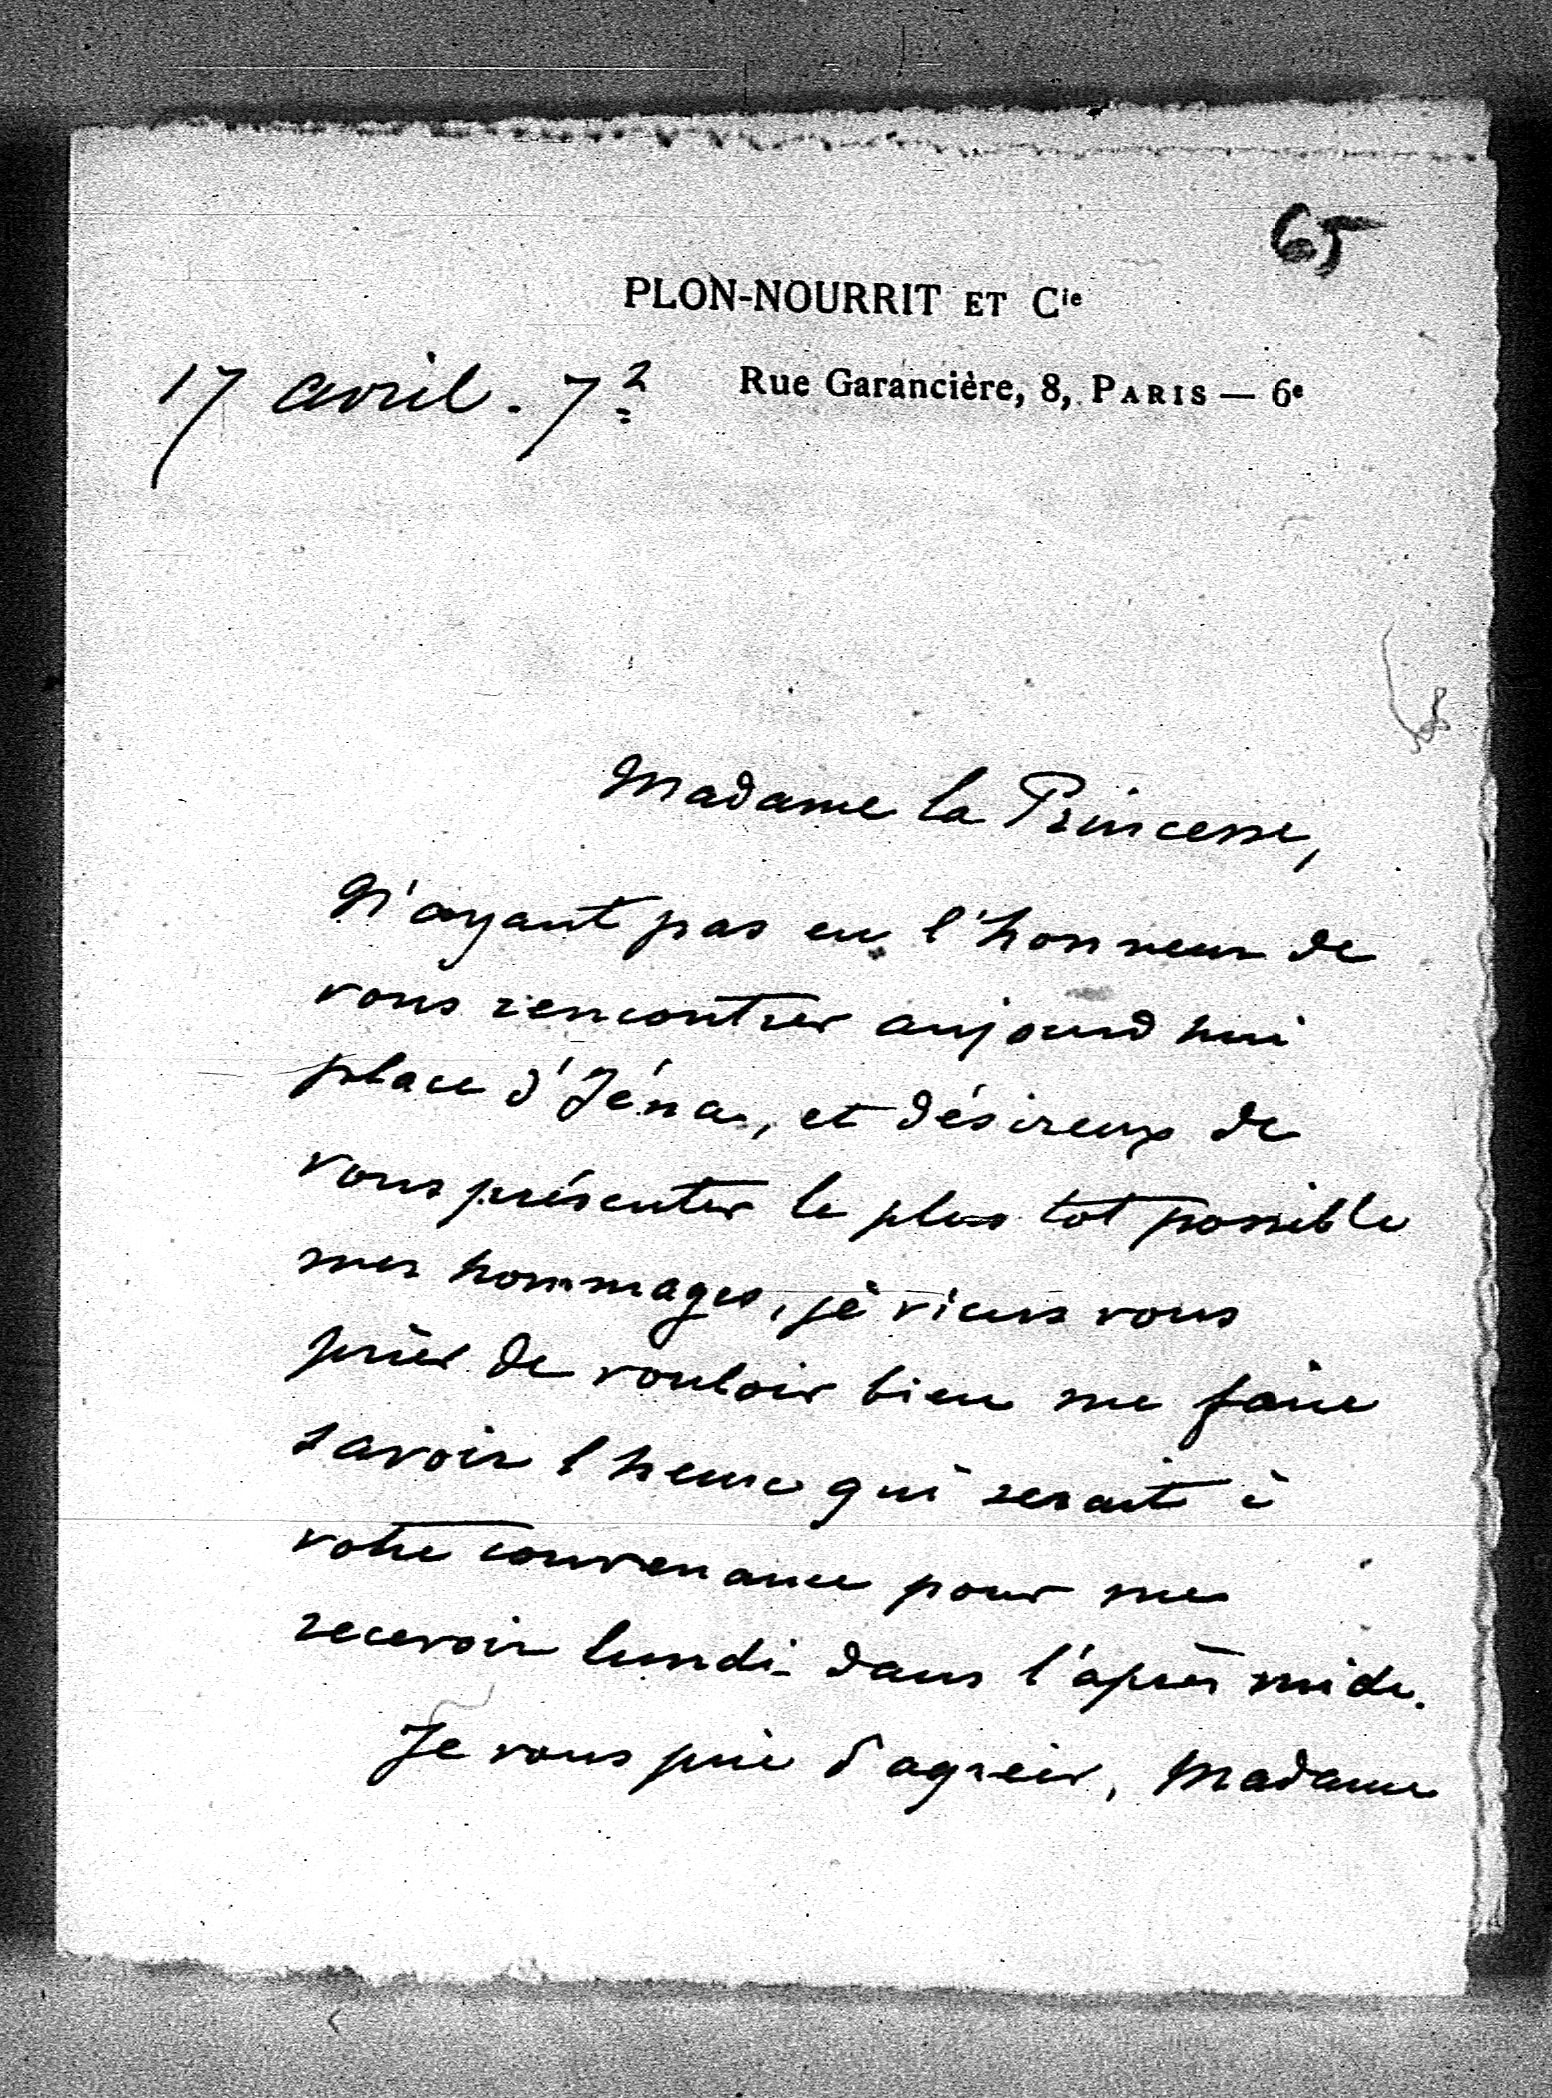 65
PLON-NOURRIT ET Cie
17 avril. 72 Rue Garancière, 8, PARIS — 6e
Madame la Princesse,
N'ayant pas eu l'honneur de
vous rencontrer aujourd hui
place d'Jéna, et désireux de
vous présenter le plus tot possible
mes hommages, je viens vous
prier de vouloir bien me faire
savoir l heure qui serait à
votre convenance pour me
recevoir lundi dans l'après midi.
Je vous prie d'agréer, Madame